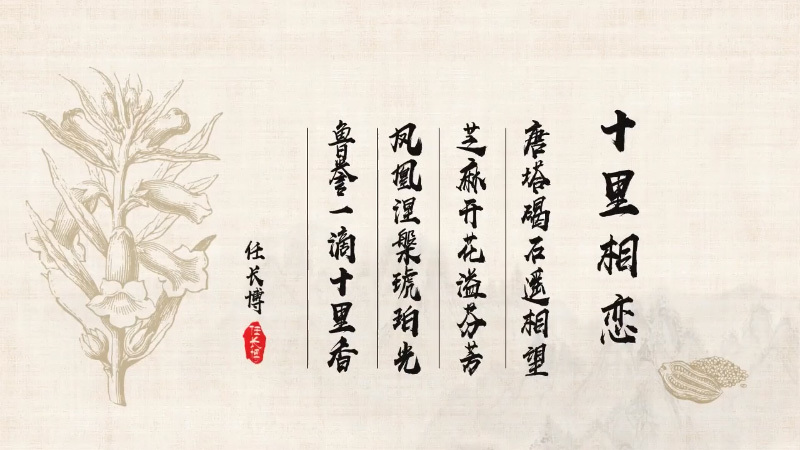 十里相恋
唐塔碣石遥相望
芝麻开花溢芬芳
凤凰涅槃琥珀光
鲁誉一滴十里香
任长博